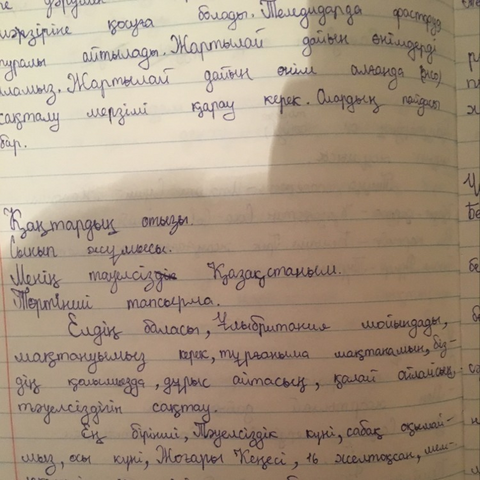 мәзіріне қосуға болады. Теледидарда фастфуд
туралы айтылады. Жартылай дайын өнімдерді
аламыз. Жартылай дайын өнім алғанда
сақталу мерзімі қарау керек. Олардың пайдасы
бар.
Қаңтардың отызы.
Сынып жұмысы.
Менің тәуелсіз Қазақстаным.
Төртінші тапсырма.
Елдің баласы, Ұлыбритания мойындады,
мақтануымыз керек, тұрғаныма мақтанамын, біз-
дің қолымызда, дұрыс айтасың, қалай ойлайсың,
тәуелсіздігін сақтау.
Ең бірінші, Тәуелсіздік күні, сабақ оқымай-
мыз, осы күні, Жоғарғы Кеңесі, 16 желтоқсан, мем-